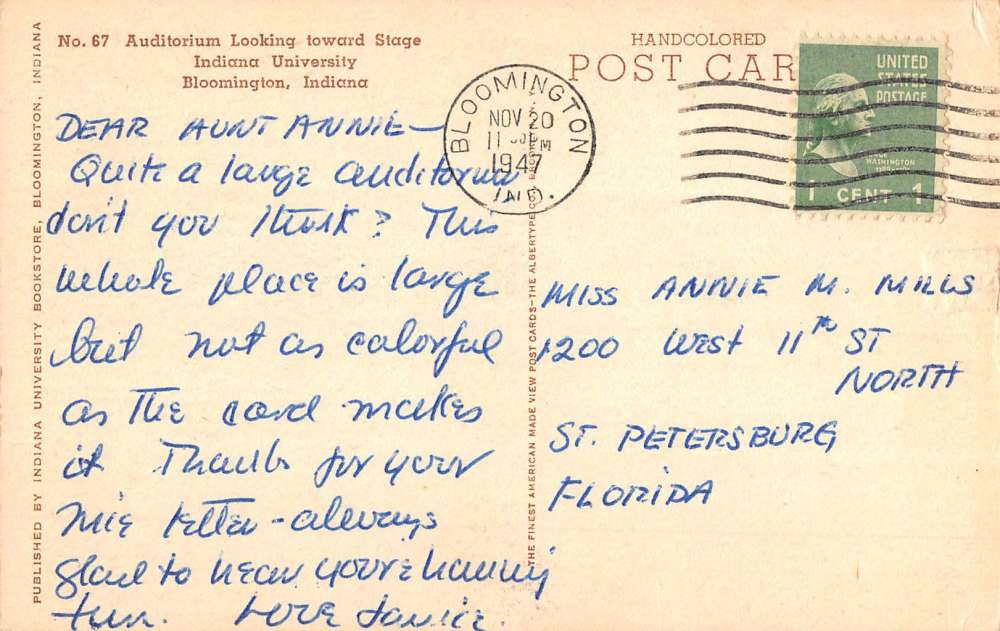 No. 67 Auditorium Looking toward Stage
Indiana University
Bloomington, Indiana
HANDCOLORED
POST CAR
BLOOMINGTON
NOV 20
11 PM
1947
IND.
UNITED
STATES
POSTAGE
WASHINGTON
1 CENT 1
DEAR AUNT ANNIE—
Quite a large auditorium
don't you think? This
whole place is large
but not as colorful
as the card makes
it Thanks for your
nice letter - always
glad to hear you're having
fun. Love Janice.
MISS ANNIE M. MILLS
1200 West 11th ST
NORTH
ST. PETERSBURG
FLORIDA
PUBLISHED BY INDIANA UNIVERSITY BOOKSTORE, BLOOMINGTON, INDIANA
THE FINEST AMERICAN MADE VIEW POST CARDS—THE ALBERTYPE